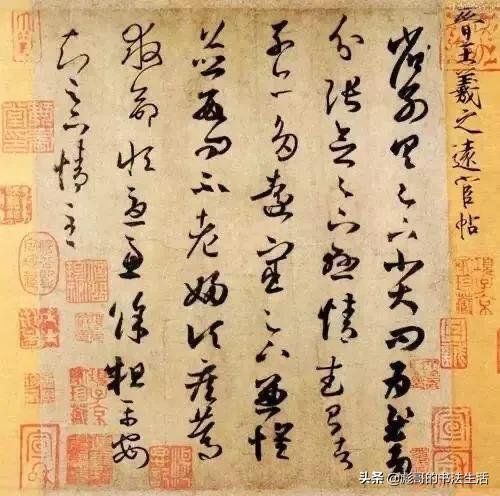 晉王羲之遠宦帖
省别具足下小大問為慰多
分張念足下懸情武昌諸
子亦多遠宦足下兼懷
並數問不老婦頃疾篤
救命恒憂慮餘粗平安
知足下情至
头条 @彪哥的书法生活